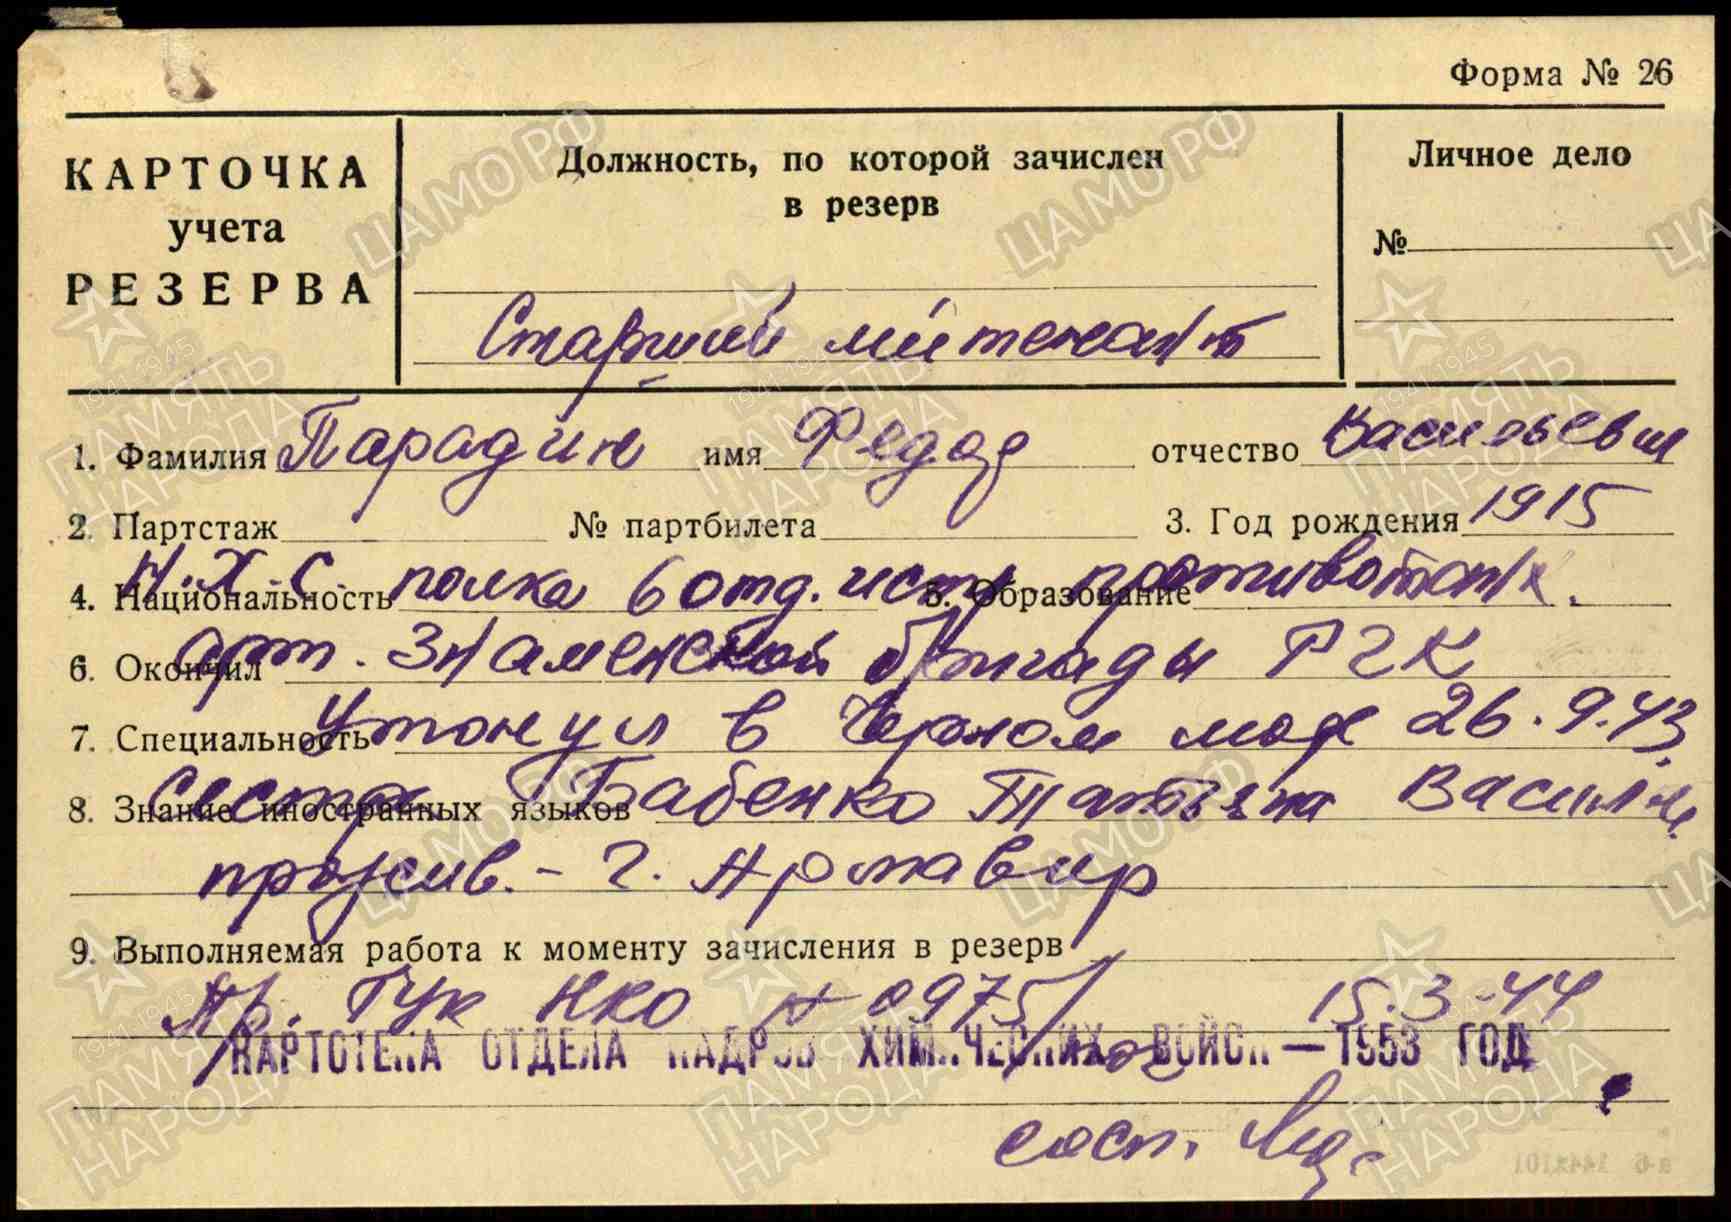 Форма № 26
КАРТОЧКА
учета
РЕЗЕРВА
Должность, по которой зачислен
в резерв
Личное дело
№
Старший лейтенант
1. Фамилия Парадин имя Федор отчество Васильевич
2. Партстаж № партбилета 3. Год рождения 1915
4. Национальность 5. Образование
Н.Х.С. полка 6 отд. истр. противотанк.
6. Окончил
арт. Знаменской бригады РГК
7. Специальность
Утонул в Черном море 26.9.43
8. Знание иностранных языков
сестра Бабенко Татьяна Василь.
прожив. - г. Армавир
9. Выполняемая работа к моменту зачисления в резерв
Пр. ГУК НКО № 0975/ 15.3-44
КАРТОТЕКА ОТДЕЛА КАДРОВ ХИМИЧЕСКИХ ВОЙСК — 1953 ГОД
сост.
ЦАМО РФ
1941-1945
ПАМЯТЬ
НАРОДА